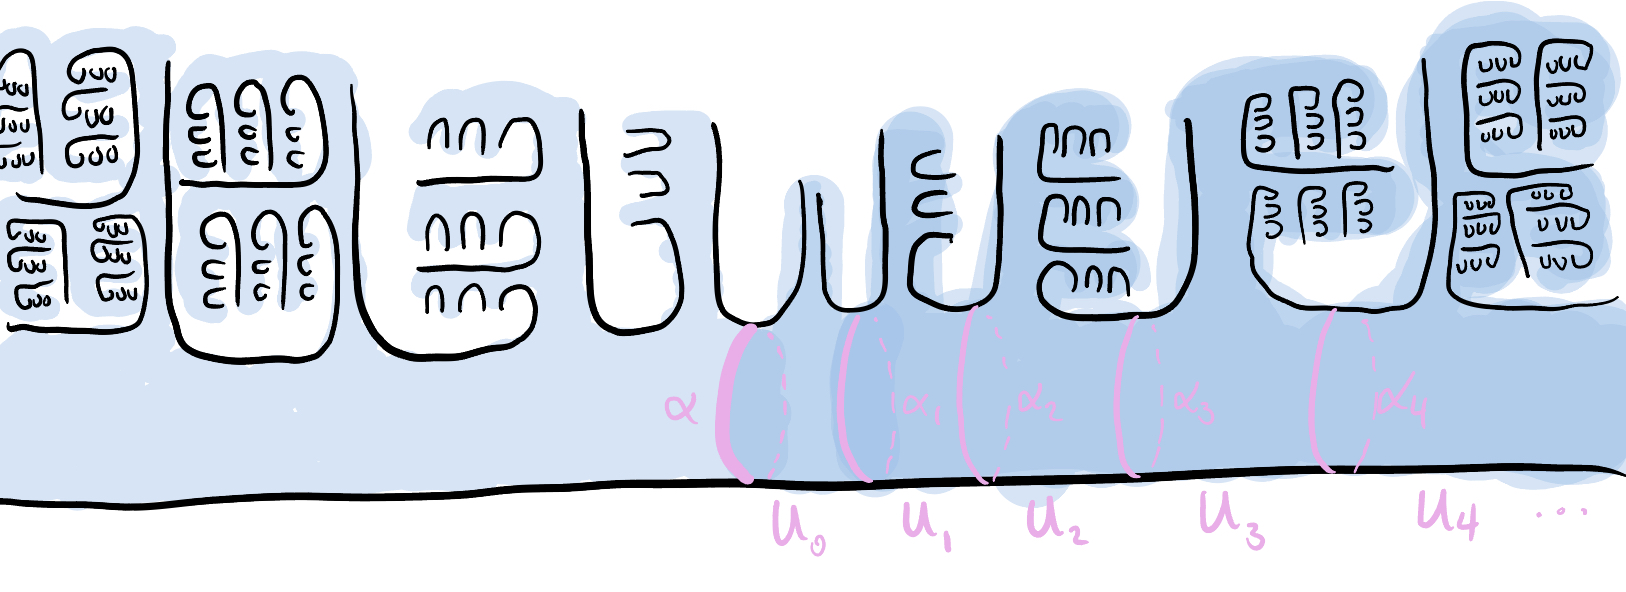 α α₁ α₂ α₃ α₄
U₀ U₁ U₂ U₃ U₄ ...